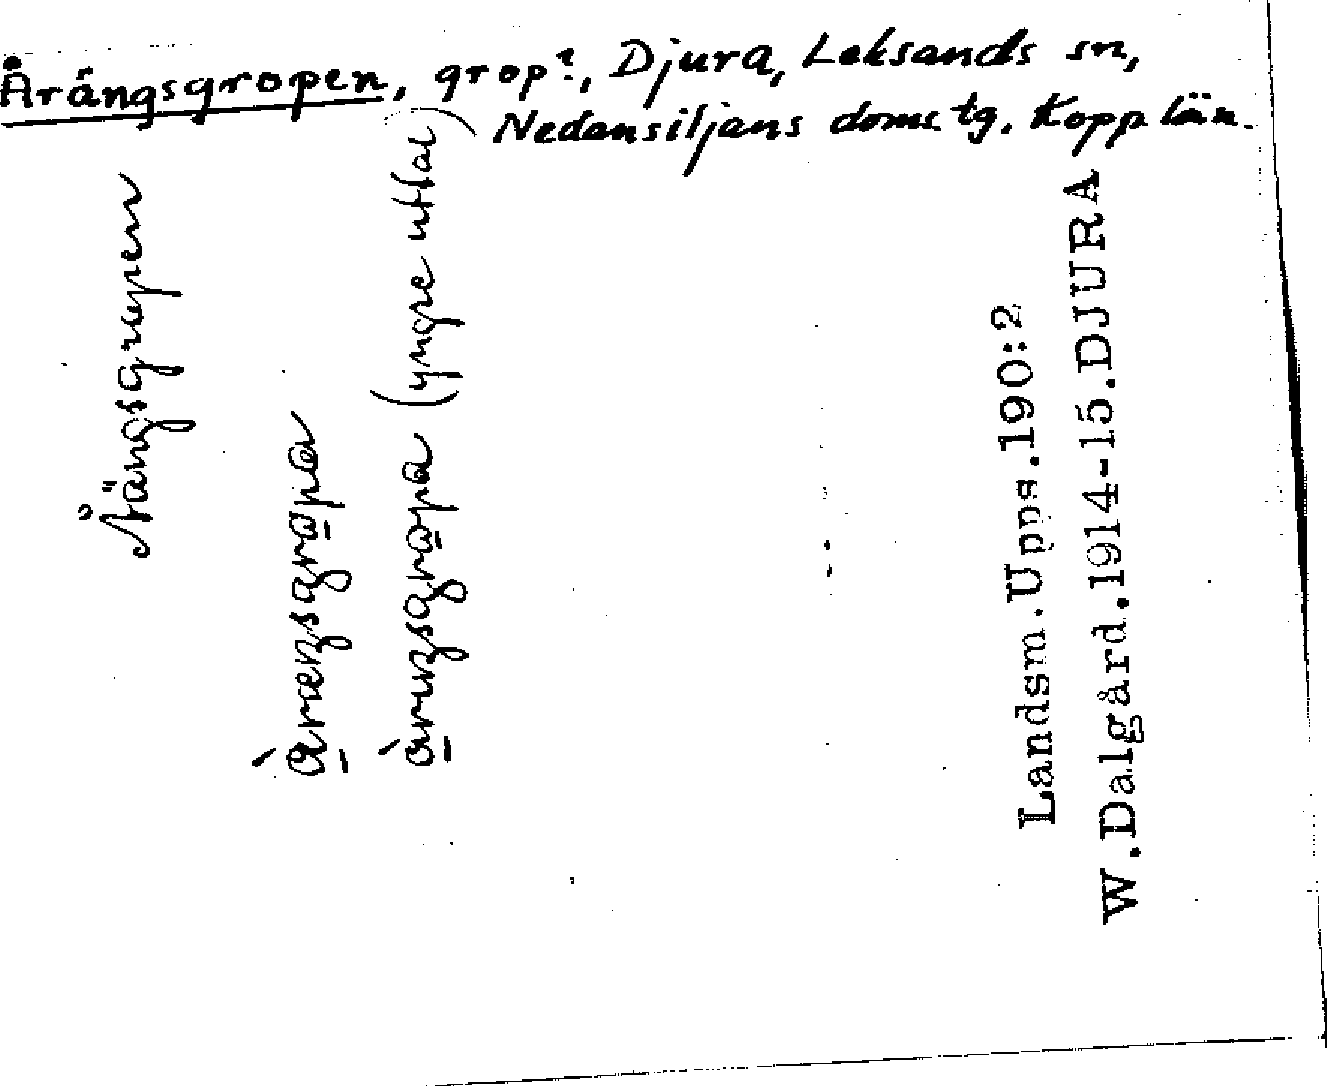 Årängsgropen, grop?, Djura, Leksands sn,
Nedansiljans doms. tg. Kopp län.
Årängsgropen
(yngre uttal)
Landsm.Upps.190:2
W.Dalgård.1914-15.DJURA